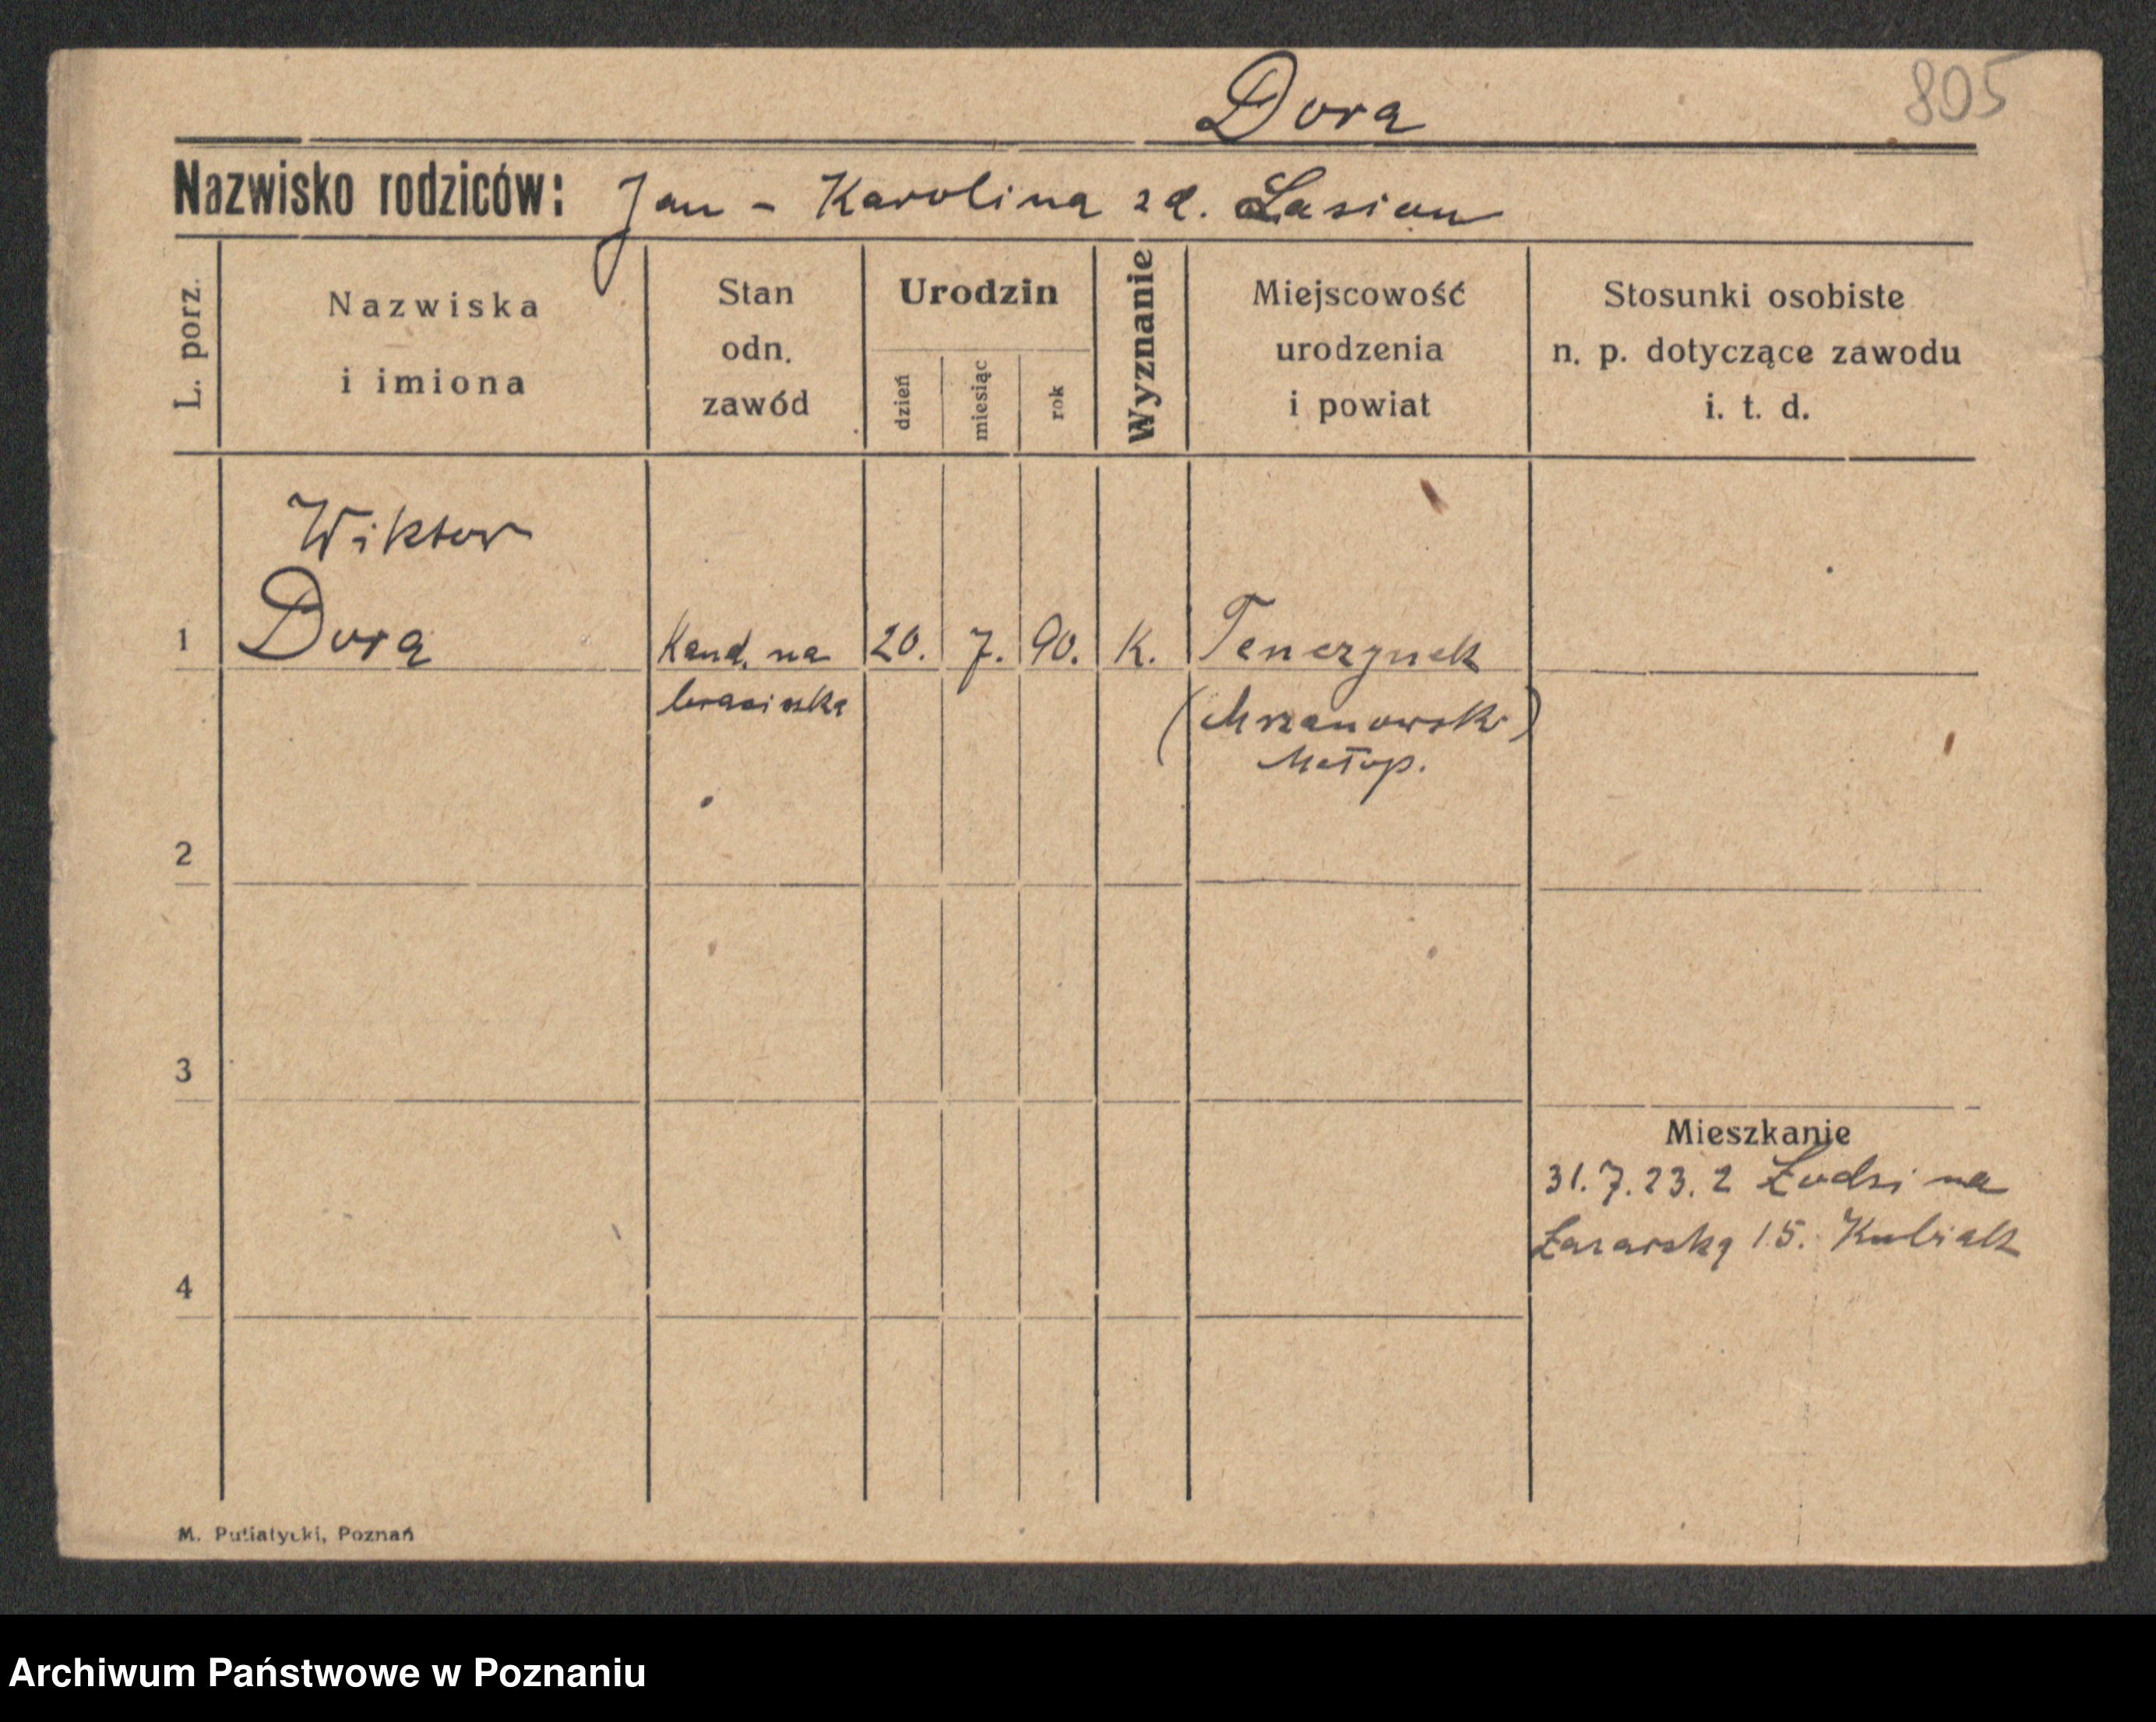 Dora
805
Nazwisko rodziców: Jan - Karolina zd. Łasioń
L. porz.
Nazwiska
i imiona
Stan
odn.
zawód
Urodzin
dzień
miesiąc
rok
Wyznanie
Miejscowość
urodzenia
i powiat
Stosunki osobiste
n. p. dotyczące zawodu
i. t. d.
Wiktor
1 Dora Kand. na 20. 7. 90. K. Tenczynek
Małop.
2
3
4
Mieszkanie
31.7.23. z Łodzi na
15. Kubiak
M. Putiatycki, Poznań
Archiwum Państwowe w Poznaniu